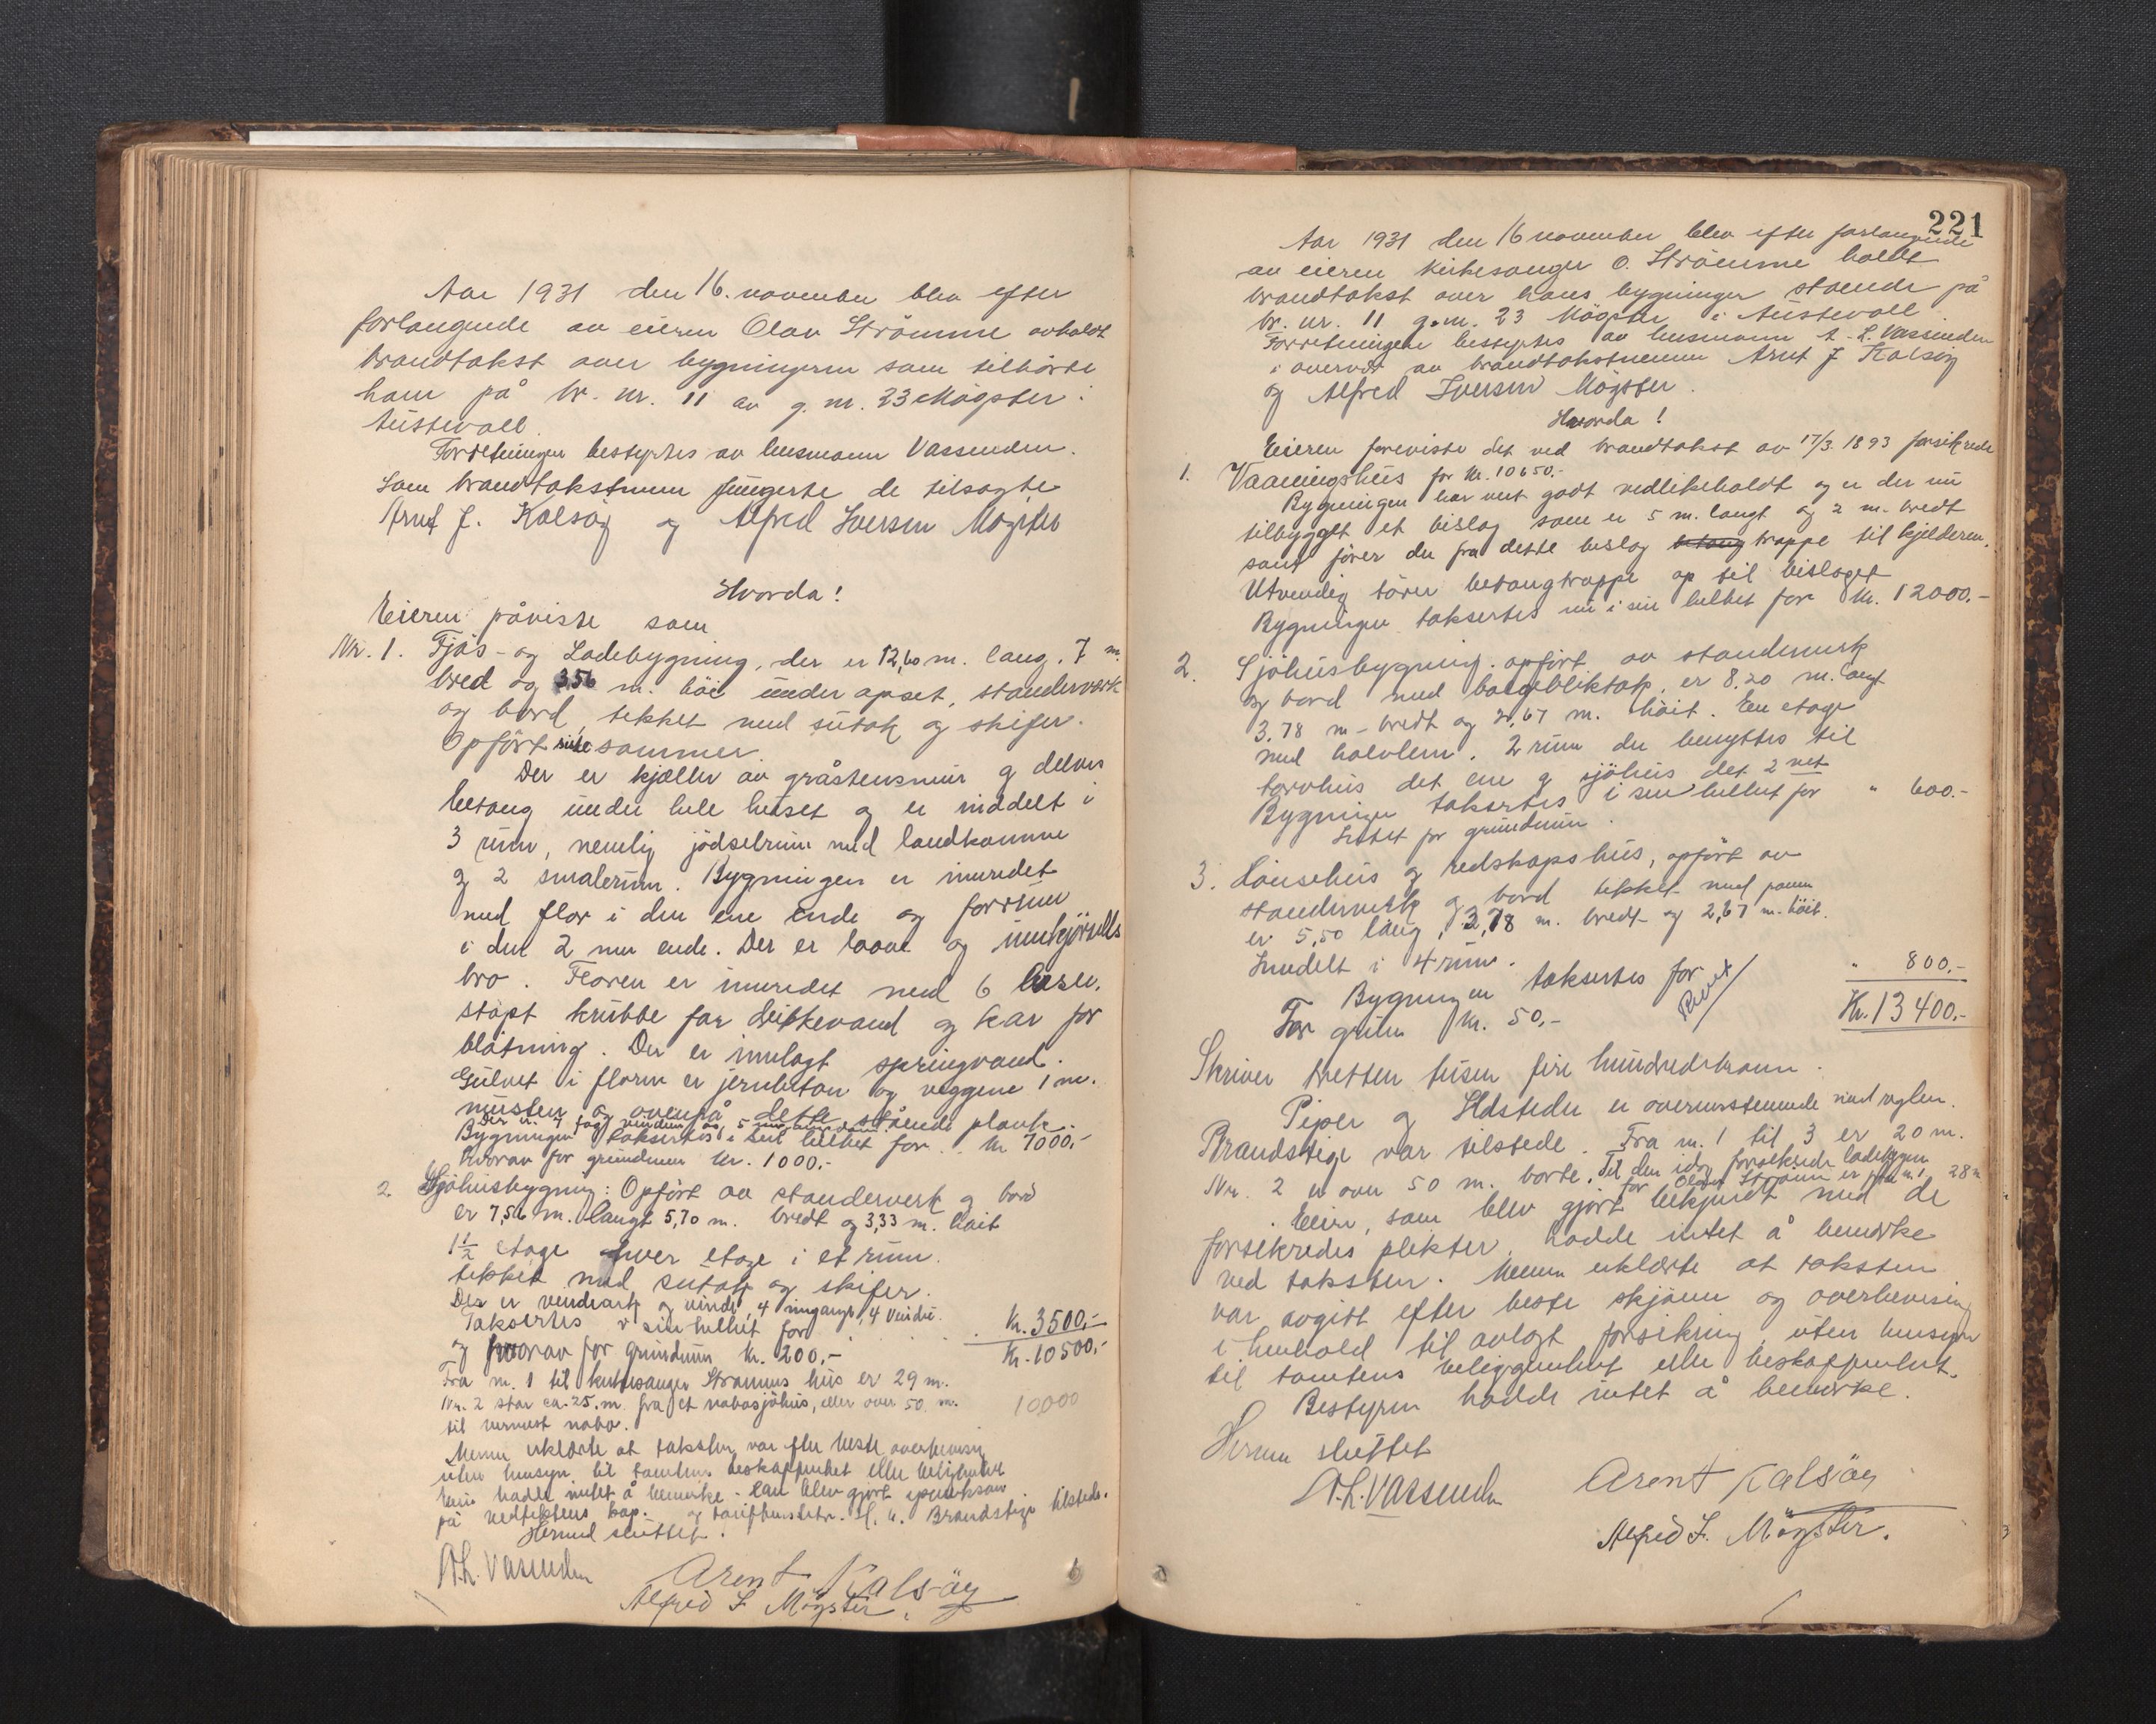 Aar 1931 den 16. november blev efter
forlangende av eieren Olav Strömme avholdt
brandtakst over bygningerne som tilhörte
ham på br. nr. 11 av g. nr. 23 Mögster i
Austevoll.
Forretningen bestyrtes av lensmann Vassenden.
Som brandtakstmenn fungerte de tilsagte
Arnt J. Kalsöy og Alfred Iversen Mögster
Hvorda!
Eieren påviste som
Nr. 1. Fjös- og Ladebygning, der er 12,60 m. lang, 7 m.
bred og 3,56 m. höi under opset, standerverk
og bord, tekket med sutak og skifer.
Opfört siste sommer.
Der er kjæller av gråstensmur og delvis
betong under hele huset og er inddelt i
3 rum, nemlig jödselrum med landkomme
og 2 smalerum. Bygningen er innredet
med flor i den ene ende og forrum
i den 2 nen ende. Der er laave og innkjörsels
bro. Floren er innredet med 6 baser.
stöpt krubbe for drikkevand og kar for
blötning. Der er innlagt springvand.
Gulvet i floren er jernbeton og veggene 1 m.
mursten og ovenpå dette stående plank.
Der er 4 fags vinduer og 5
Bygningen taksertes i sin helhet for . . kr. 7000,-
Hvorav for grundmur kr. 1000,-
2. Sjöhusbygning: Opfört av standerverk og bord
er 7,56 m. langt 5,70 m. bredt og 3,33 m. höit
1 1/2 etage hver etage i et rum.
tekket med sutak og skifer.
Der er vindeark og vinde, 4 inngange, 4 vindu.
Taksertes i sin helhet for . . . Kr. 3500,-
og hvorav for grundmur kr. 200,- Kr. 10500,-
Fra nr. 1 til kirkesanger Strömmes hus er 29 m.
Nr. 2 står ca. 25. m. fra et nabosjöhus, eller over 50 m. 10,000
til nærmest nabo.
Menn erklærte at taksten var efter beste overbevisning
uten hensyn til tomtens beskaffenhet eller beliggenhet
Eier hadde intet å bemerke. Han blev gjort opmerksom
på vedtektens kap. og Brandstige tilstede.
Hermed sluttet.
A. L. Vassenden Arent Kalsöy
Alfred I. Mögster.
221
Aar 1931 den 16 november blev efter forlangende
av eieren kirkesanger O. Strömme holdt
brandtakst over hans bygninger stående på
br. nr. 11 g. nr. 23 Mögster i Austevoll.
Forretningen bestyrtes av lensmann A. L. Vassenden
i overvær av brandtakstmenn Arnt J. Kalsöy
og Alfred Iversen Mögster.
Hvorda!
Eieren foreviste det ved brandtakst av 17/3. 1893 forsikrede
1. Vaaningshus for kr. 10650.-
Bygningen har vert godt vedlikeholdt og er der nu
tilbygget et bislag som er 5 m. langt og 2 m. bredt
samt förer der fra dette bislag betong trappe til kjelderen.
Utvendig förer betongtrappe op til bislaget
Bygningen taksertes nu i sin helhet for Kr. 12000.-
2. Sjöhusbygning. opfört av standerverk
og bord med bölgebliktak, er 8,20 m. langt
3,78 m- bredt og 2,67 m. höit. En etage
med halvlem. 2 rum der benyttes til
torvhus det ene og sjöhus det 2 net
Bygningen taksertes i sin helhet for " 600.-
Intet for grundmur.
3. Hönsehus og redskapshus, opfört av
standerverk og bord tekket med panner
er 5,50 lang, 3,78 m. bredt og 2,67 m. höit.
Inndelt i 4 rum.
Bygningen taksertes for " 800.-
For grmur kr. 50,- Kr. 13400.-
Skriver tretten tusen fire hundrede kroner.
Piper og Ildsteder er overensstemmende med reglen.
Brandstige var tilstede. Fra nr. 1 til 3 er 20 m.
Nr. 2 er over 50 m. borte. Til den idag forsikrede ladebygn
for Olav Strömme er fra nr. 1 28 m
Eier, som blev gjort bekjendt med de
forsikredes plikter, hadde intet å bemerke
ved taksten. Menn erklærte at taksten
var avgitt efter beste skjönn og overbevisning
i henhold til avlagt forsikring, uten hensyn
til tomtens beliggenhet eller beskaffenhet.
Bestyren hadde intet å bemerke.
Hermed sluttet
A. L. Vassenden Arent Kalsöy
Alfred I. Mögster.